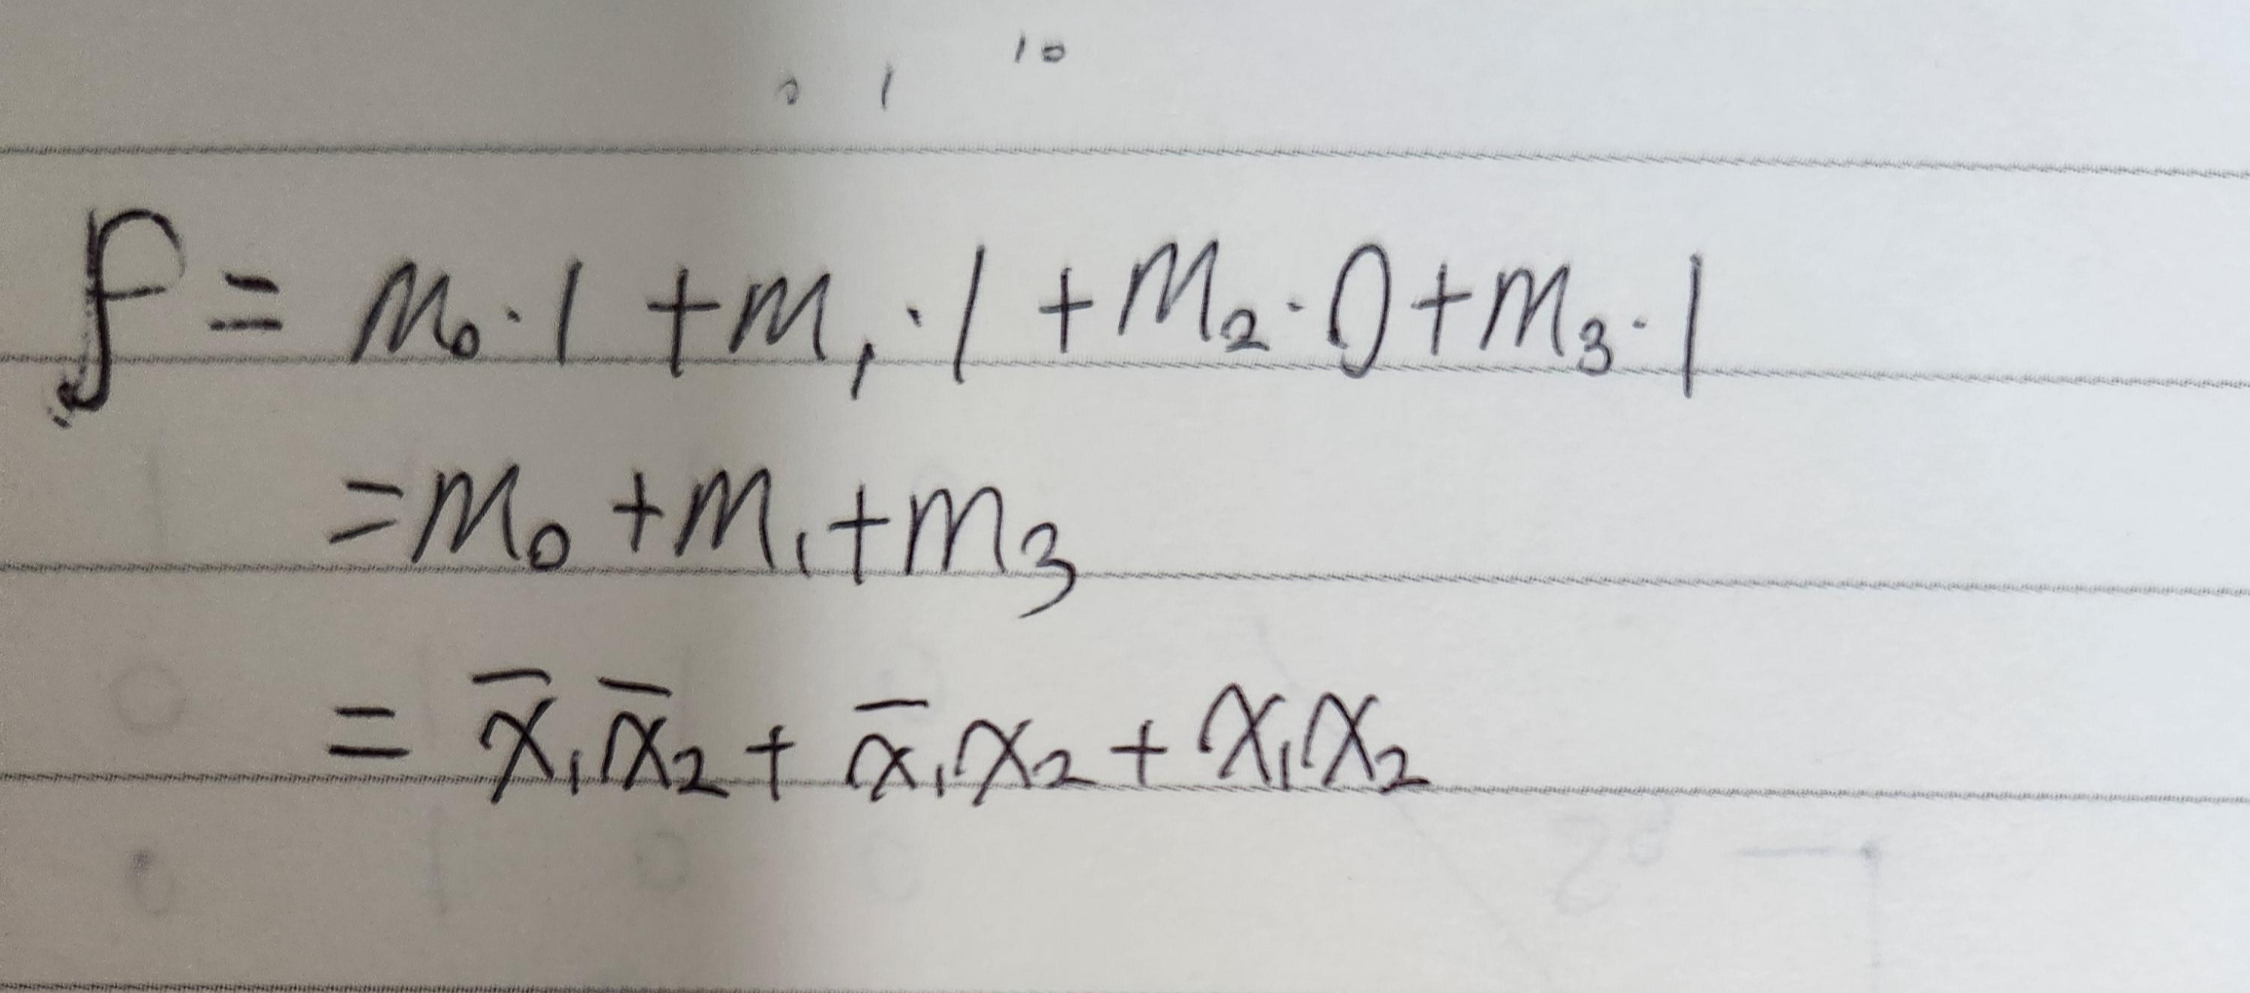 0 1 10
f = m₀·1 + m₁·1 + m₂·0 + m₃·1
= m₀ + m₁ + m₃
= x̅₁x̅₂ + x̅₁x₂ + x₁x₂